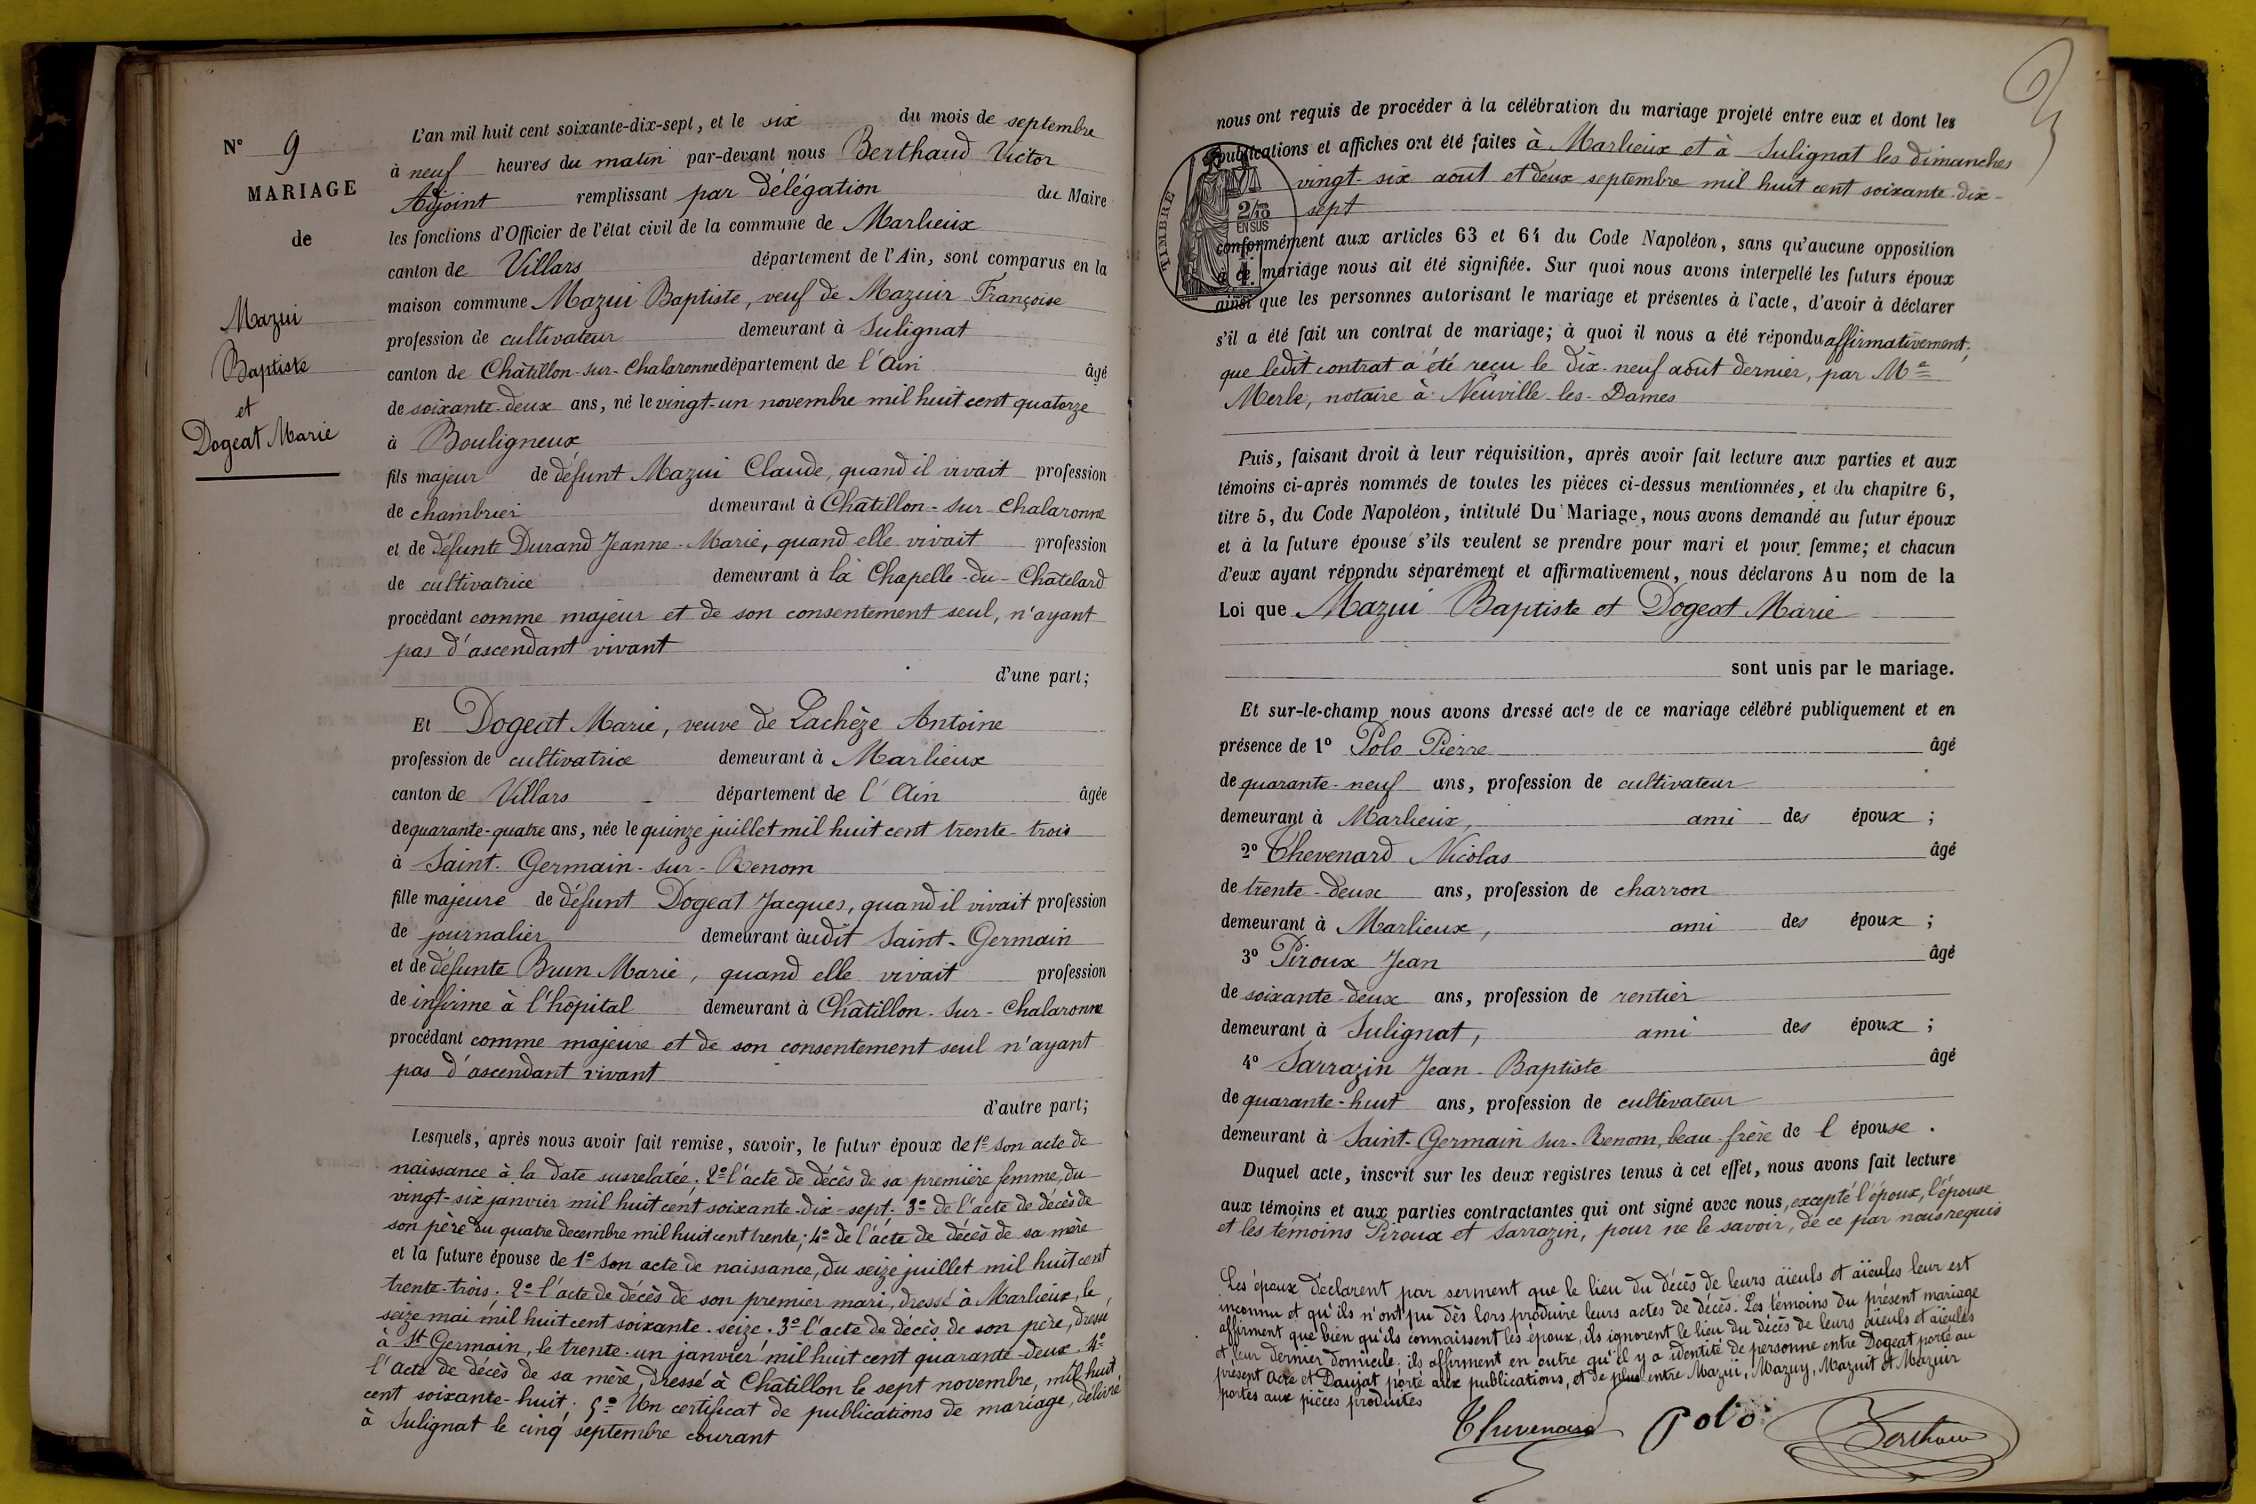 N° 9
MARIAGE
de
Mazui
Baptiste
et
Dogeat Marie
L'an mil huit cent soixante-dix-sept, et le six du mois de septembre
à neuf heures du matin par-devant nous Berthaud Victor
Adjoint remplissant par délégation du Maire
les fonctions d'Officier de l'état civil de la commune de Marlieux
canton de Villars département de l'Ain, sont comparus en la
maison commune Mazui Baptiste, veuf de Mazuir Françoise
profession de cultivateur demeurant à Sulignat
canton de Châtillon-sur-Chalaronne département de l'Ain âgé
de soixante-deux ans, né le vingt-un novembre mil huit cent quatorze
à Bouligneux
fils majeur de défunt Mazui Claude, quand il vivait profession
de chambrier demeurant à Châtillon-sur-Chalaronne
et de défunte Durand Jeanne-Marie, quand elle vivait profession
de cultivatrice demeurant à la Chapelle-du-Châtelard
procédant comme majeur et de son consentement seul, n'ayant
pas d'ascendant vivant
d'une part;
Et Dogeat Marie, veuve de Lachèze Antoine
profession de cultivatrice demeurant à Marlieux
canton de Villars département de l'Ain âgée
de quarante-quatre ans, née le quinze juillet mil huit cent trente-trois
à Saint-Germain-sur-Renom
fille majeure de défunt Dogeat Jacques, quand il vivait profession
de journalier demeurant àudit Saint-Germain
et de défunte Brun Marie, quand elle vivait profession
de infirme à l'hôpital demeurant à Châtillon-sur-Chalaronne
procédant comme majeure et de son consentement seul n'ayant
pas d'ascendant vivant
d'autre part;
Lesquels, après nous avoir fait remise, savoir, le futur époux de 1° son acte de
naissance à la date susrelatée; 2° l'acte de décès de sa première femme, du
vingt-six janvier mil huit cent soixante-dix-sept. 3° de l'acte de décès de
son père du quatre decembre mil huit cent trente; 4° de l'acte de décès de sa mère
et la future épouse de 1° son acte de naissance, du seize juillet mil huit cent
trente-trois. 2° l'acte de décès de son premier mari, dressé à Marlieux, le
seize mai mil huit cent soixante-seize. 3° l'acte de décès de son père, dressé
à St Germain, le trente-un janvier mil huit cent quarante-deux. 4°
l'acte de décès de sa mère, dressé à Châtillon le sept novembre, mil huit
cent soixante-huit. 5° Un certificat de publications de mariage, délivré
à Sulignat le cinq septembre courant
nous ont requis de procéder à la célébration du mariage projeté entre eux et dont les
publications et affiches ont été faites à Marlieux et à Sulignat les dimanches
vingt-six août et deux septembre mil huit cent soixante-dix-
sept
TIMBRE
2/10
EN SUS
4.
conformément aux articles 63 et 64 du Code Napoléon, sans qu'aucune opposition
à ce mariage nous ait été signifiée. Sur quoi nous avons interpellé les futurs époux
ainsi que les personnes autorisant le mariage et présentes à l'acte, d'avoir à déclarer
s'il a été fait un contrat de mariage; à quoi il nous a été répondu affirmativement,
que ledit contrat a été reçu le dix-neuf août dernier, par Me
Merle, notaire à Neuville-les-Dames
Puis, faisant droit à leur réquisition, après avoir fait lecture aux parties et aux
témoins ci-après nommés de toutes les pièces ci-dessus mentionnées, et du chapitre 6,
titre 5, du Code Napoléon, intitulé Du Mariage, nous avons demandé au futur époux
et à la future épouse s'ils veulent se prendre pour mari et pour femme; et chacun
d'eux ayant répondu séparément et affirmativement, nous déclarons Au nom de la
Loi que Mazui Baptiste et Dogeat Marie
sont unis par le mariage.
Et sur-le-champ nous avons dressé acte de ce mariage célébré publiquement et en
présence de 1° Polo Pierre âgé
de quarante-neuf ans, profession de cultivateur
demeurant à Marlieux, ami des époux;
2° Thevenard Nicolas âgé
de trente-deux ans, profession de charron
demeurant à Marlieux, ami des époux;
3° Piroux Jean âgé
de soixante-deux ans, profession de rentier
demeurant à Sulignat, ami des époux;
4° Sarrazin Jean-Baptiste âgé
de quarante-huit ans, profession de cultivateur
demeurant à Saint-Germain sur-Renom, beau-frère de l épouse.
Duquel acte, inscrit sur les deux registres tenus à cet effet, nous avons fait lecture
aux témoins et aux parties contractantes qui ont signé avec nous, excepté l'époux, l'épouse
et les témoins Piroux et Sarrazin, pour ne le savoir, de ce par nous requis
Les époux déclarent par serment que le lieu du décès de leurs aïeuls et aïeules leur est
inconnu et qu'ils n'ont pu dès lors produire leurs actes de décès. Les témoins du présent mariage
affirment que bien qu'ils connaissent les époux, ils ignorent le lieu du décès de leurs aïeuls et aïeules
et leur dernier domicile. ils affirment en outre qu'il y a identité de personne entre Dogeat porté au
présent acte et Daujat porté aux publications, et de plus entre Mazui, Mazuy, Mazuit et Mazuir
portés aux pièces produites
Thevenard Polo Berthaud